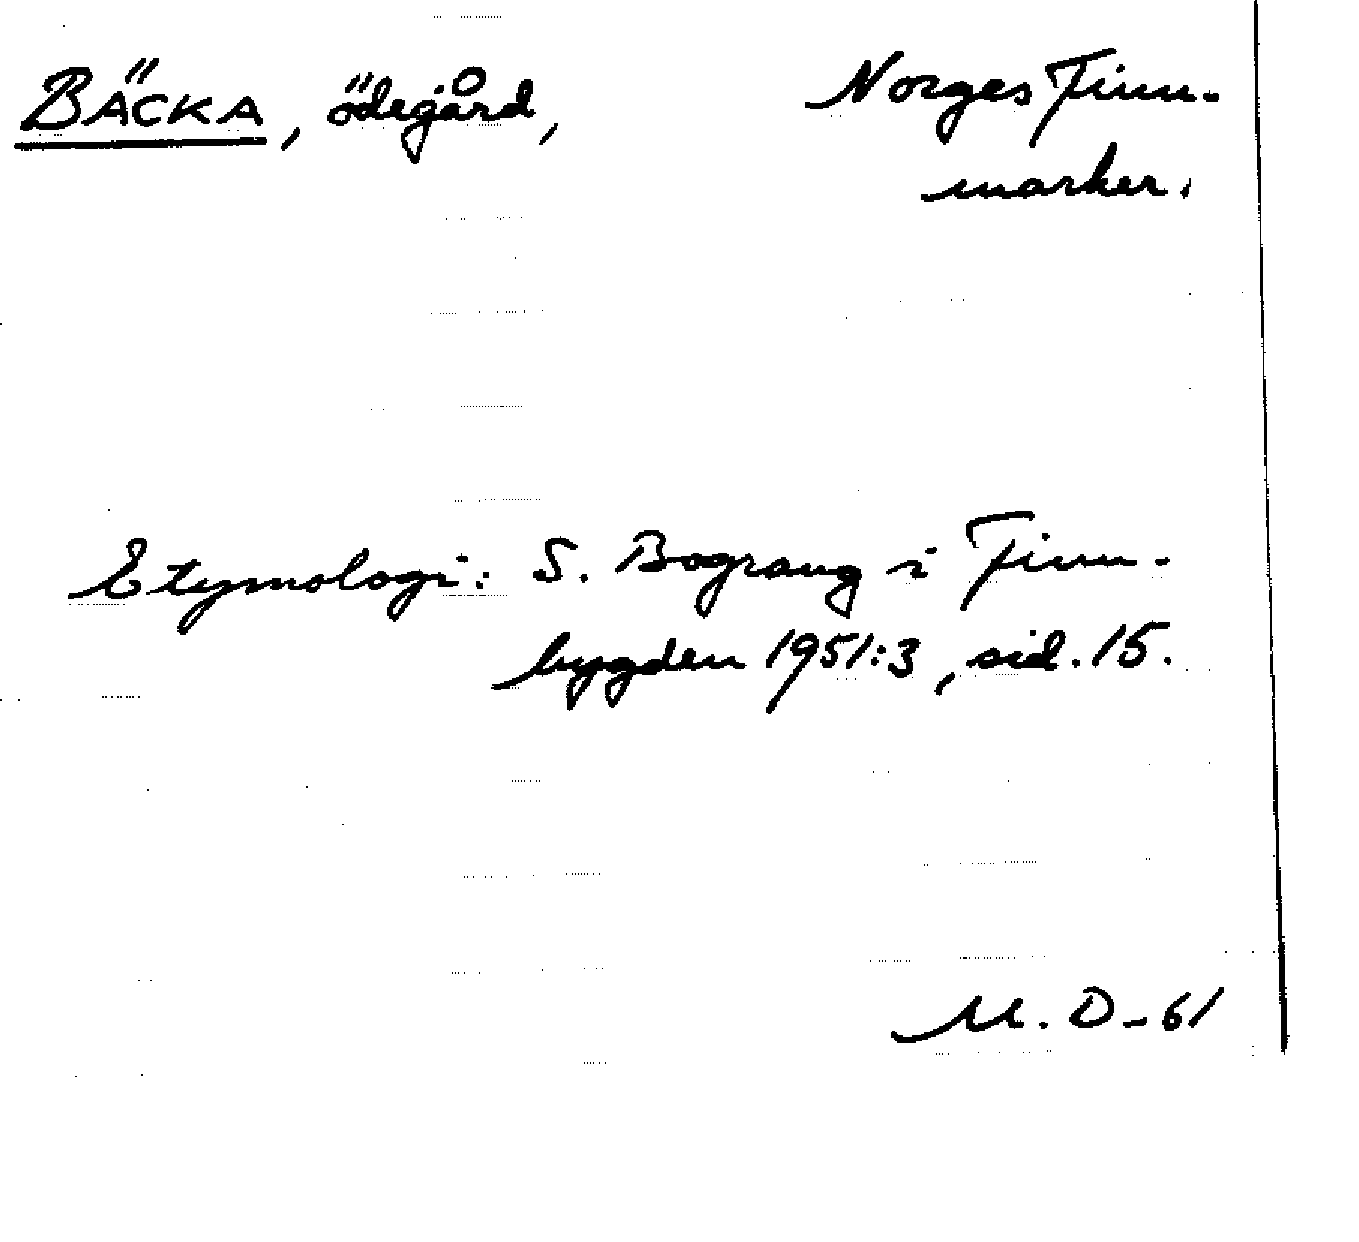 BÄCKA, ödegård, Norges Finn-
marker.
Etymologi: S. Bograng i Finn-
bygden 1951:3, sid. 15.
M. D-61